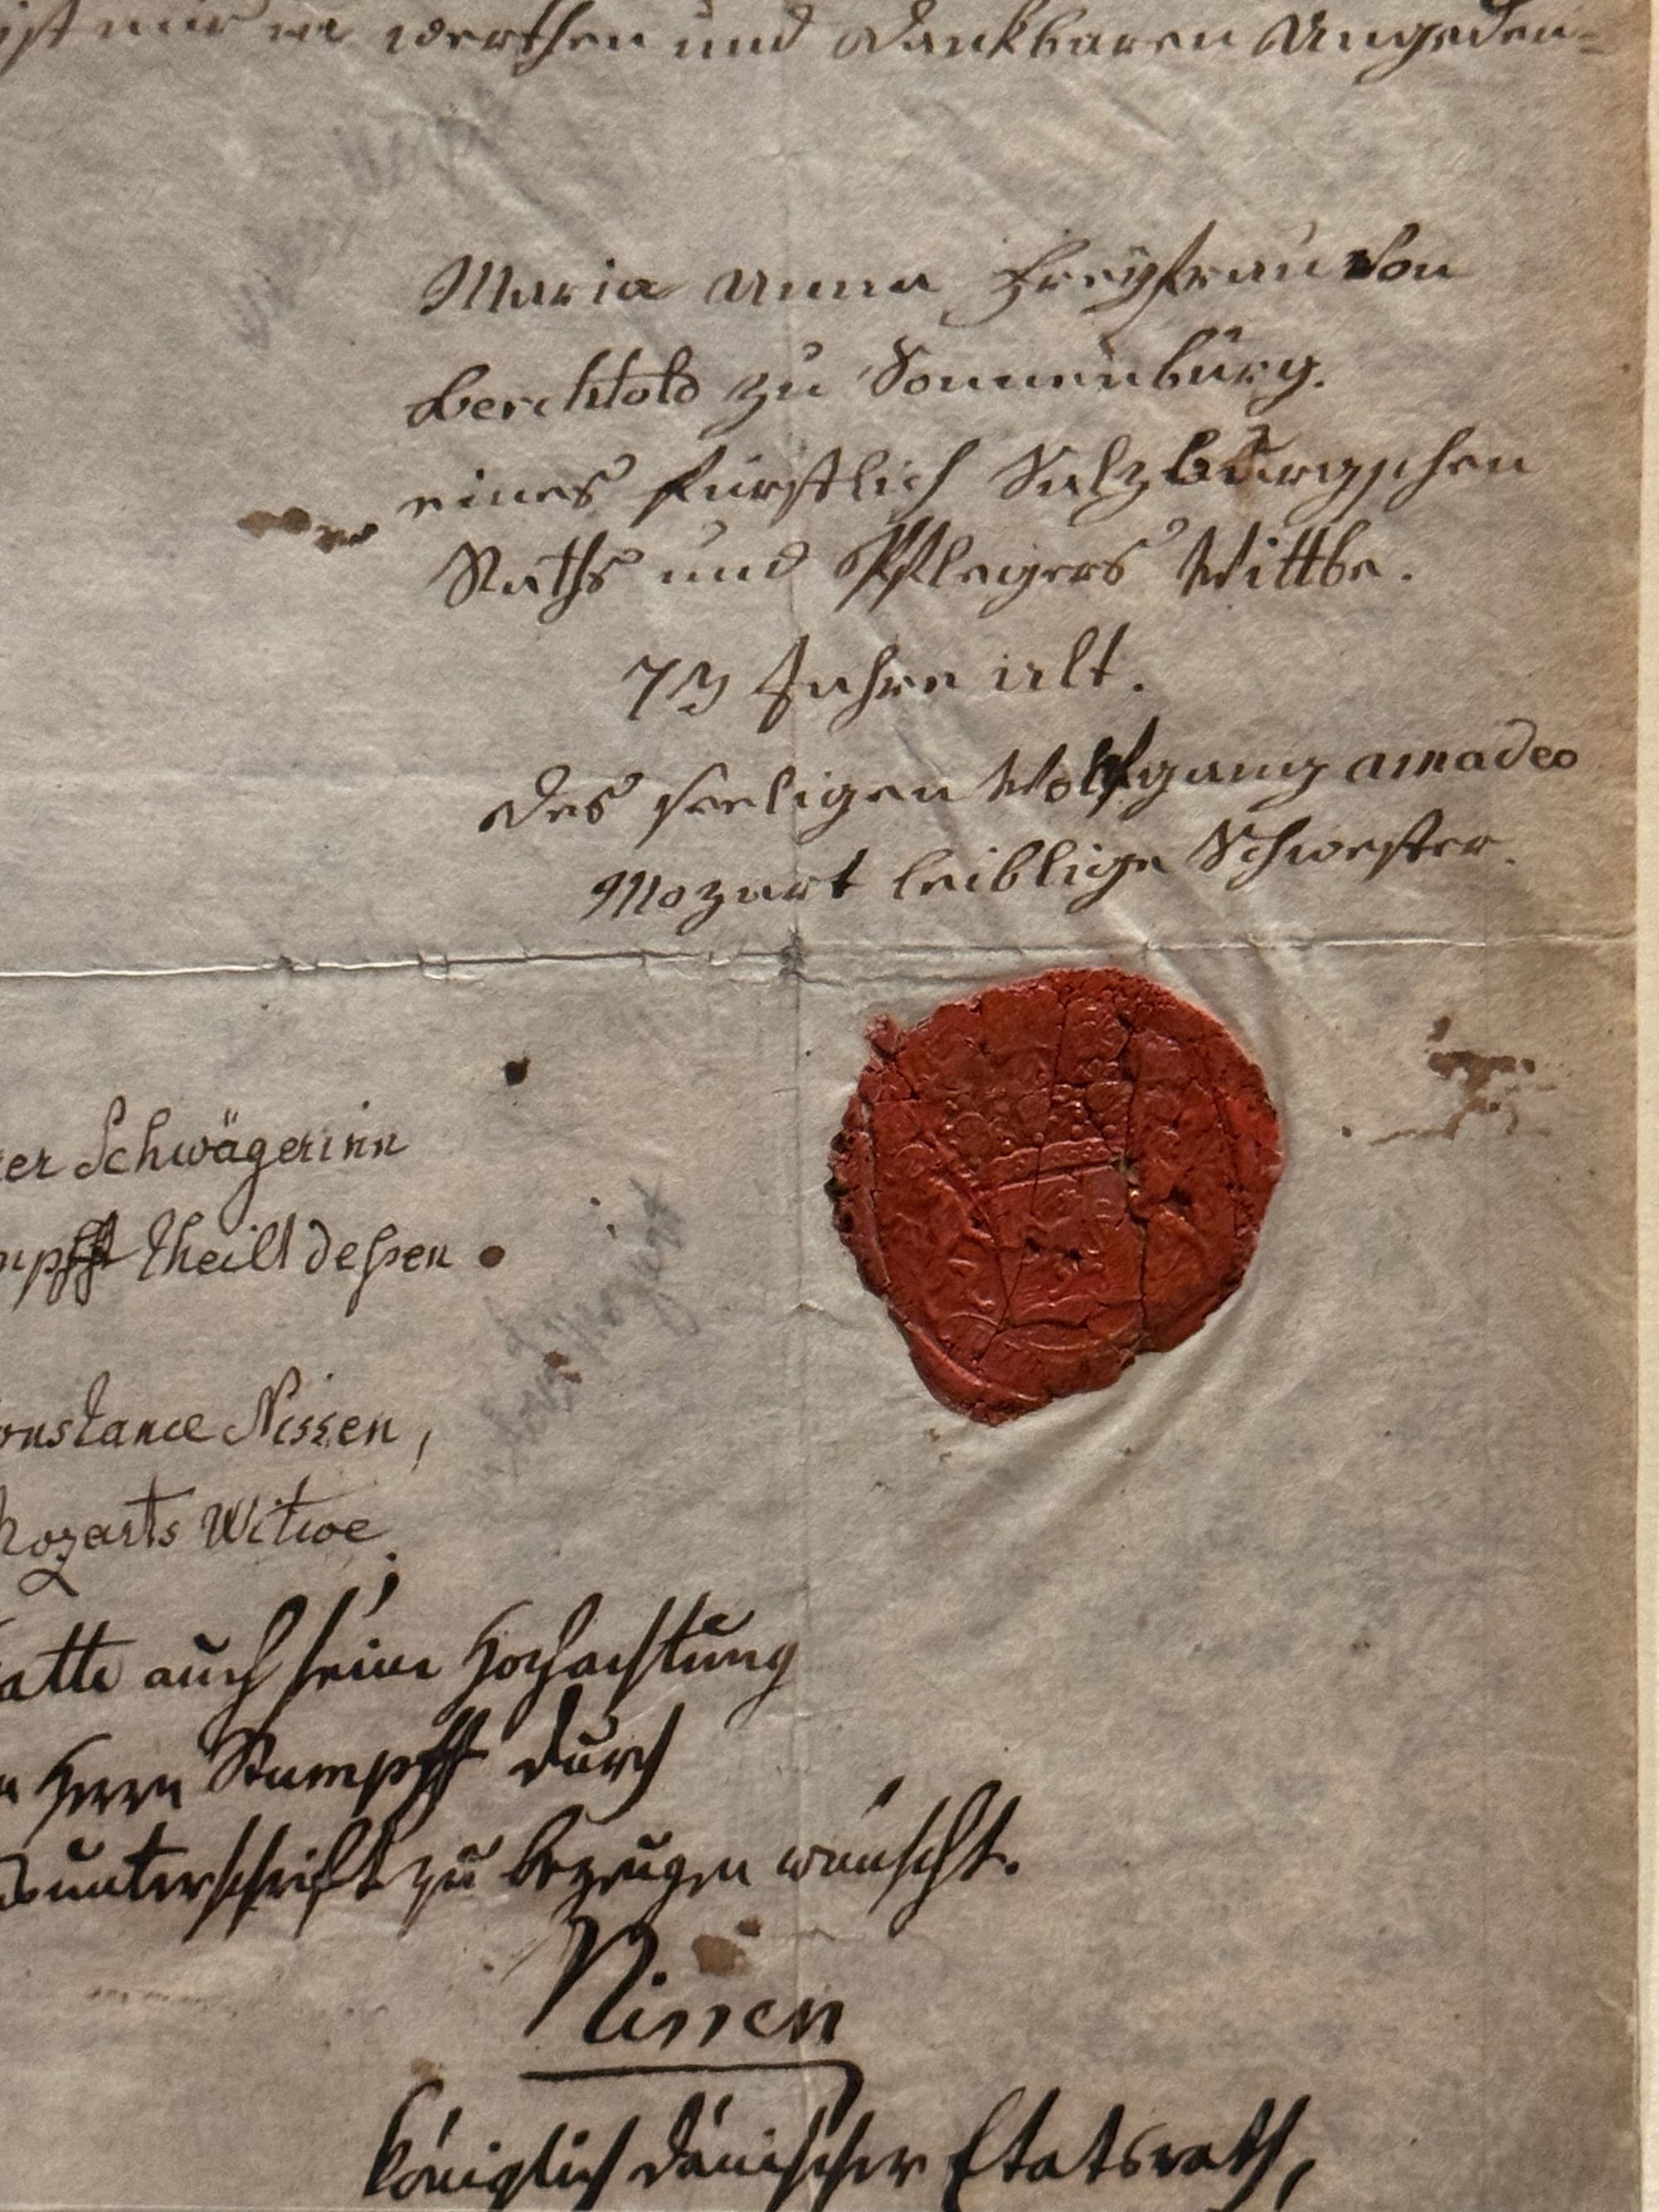 ist mir in werthen und dankbaren Angeden-
Maria Anna Freyfrau von
Berchtold zu Sonnenburg.
eines fürstlich Salzburgischen
Raths und Pflegers Wittbe.
73 Jahre alt.
des seeligen Wolfgang amadeo
Mozart leiblige Schwester.
er Schwägerinn
mpff theilt deßen
onstance Nissen,
Mozarts Witwe
atte auch seine Hochachtung
Herrn Stumpff durch
unterschrift zu bezeugen wünscht.
Nissen
königlich dänischer Etatsrath,